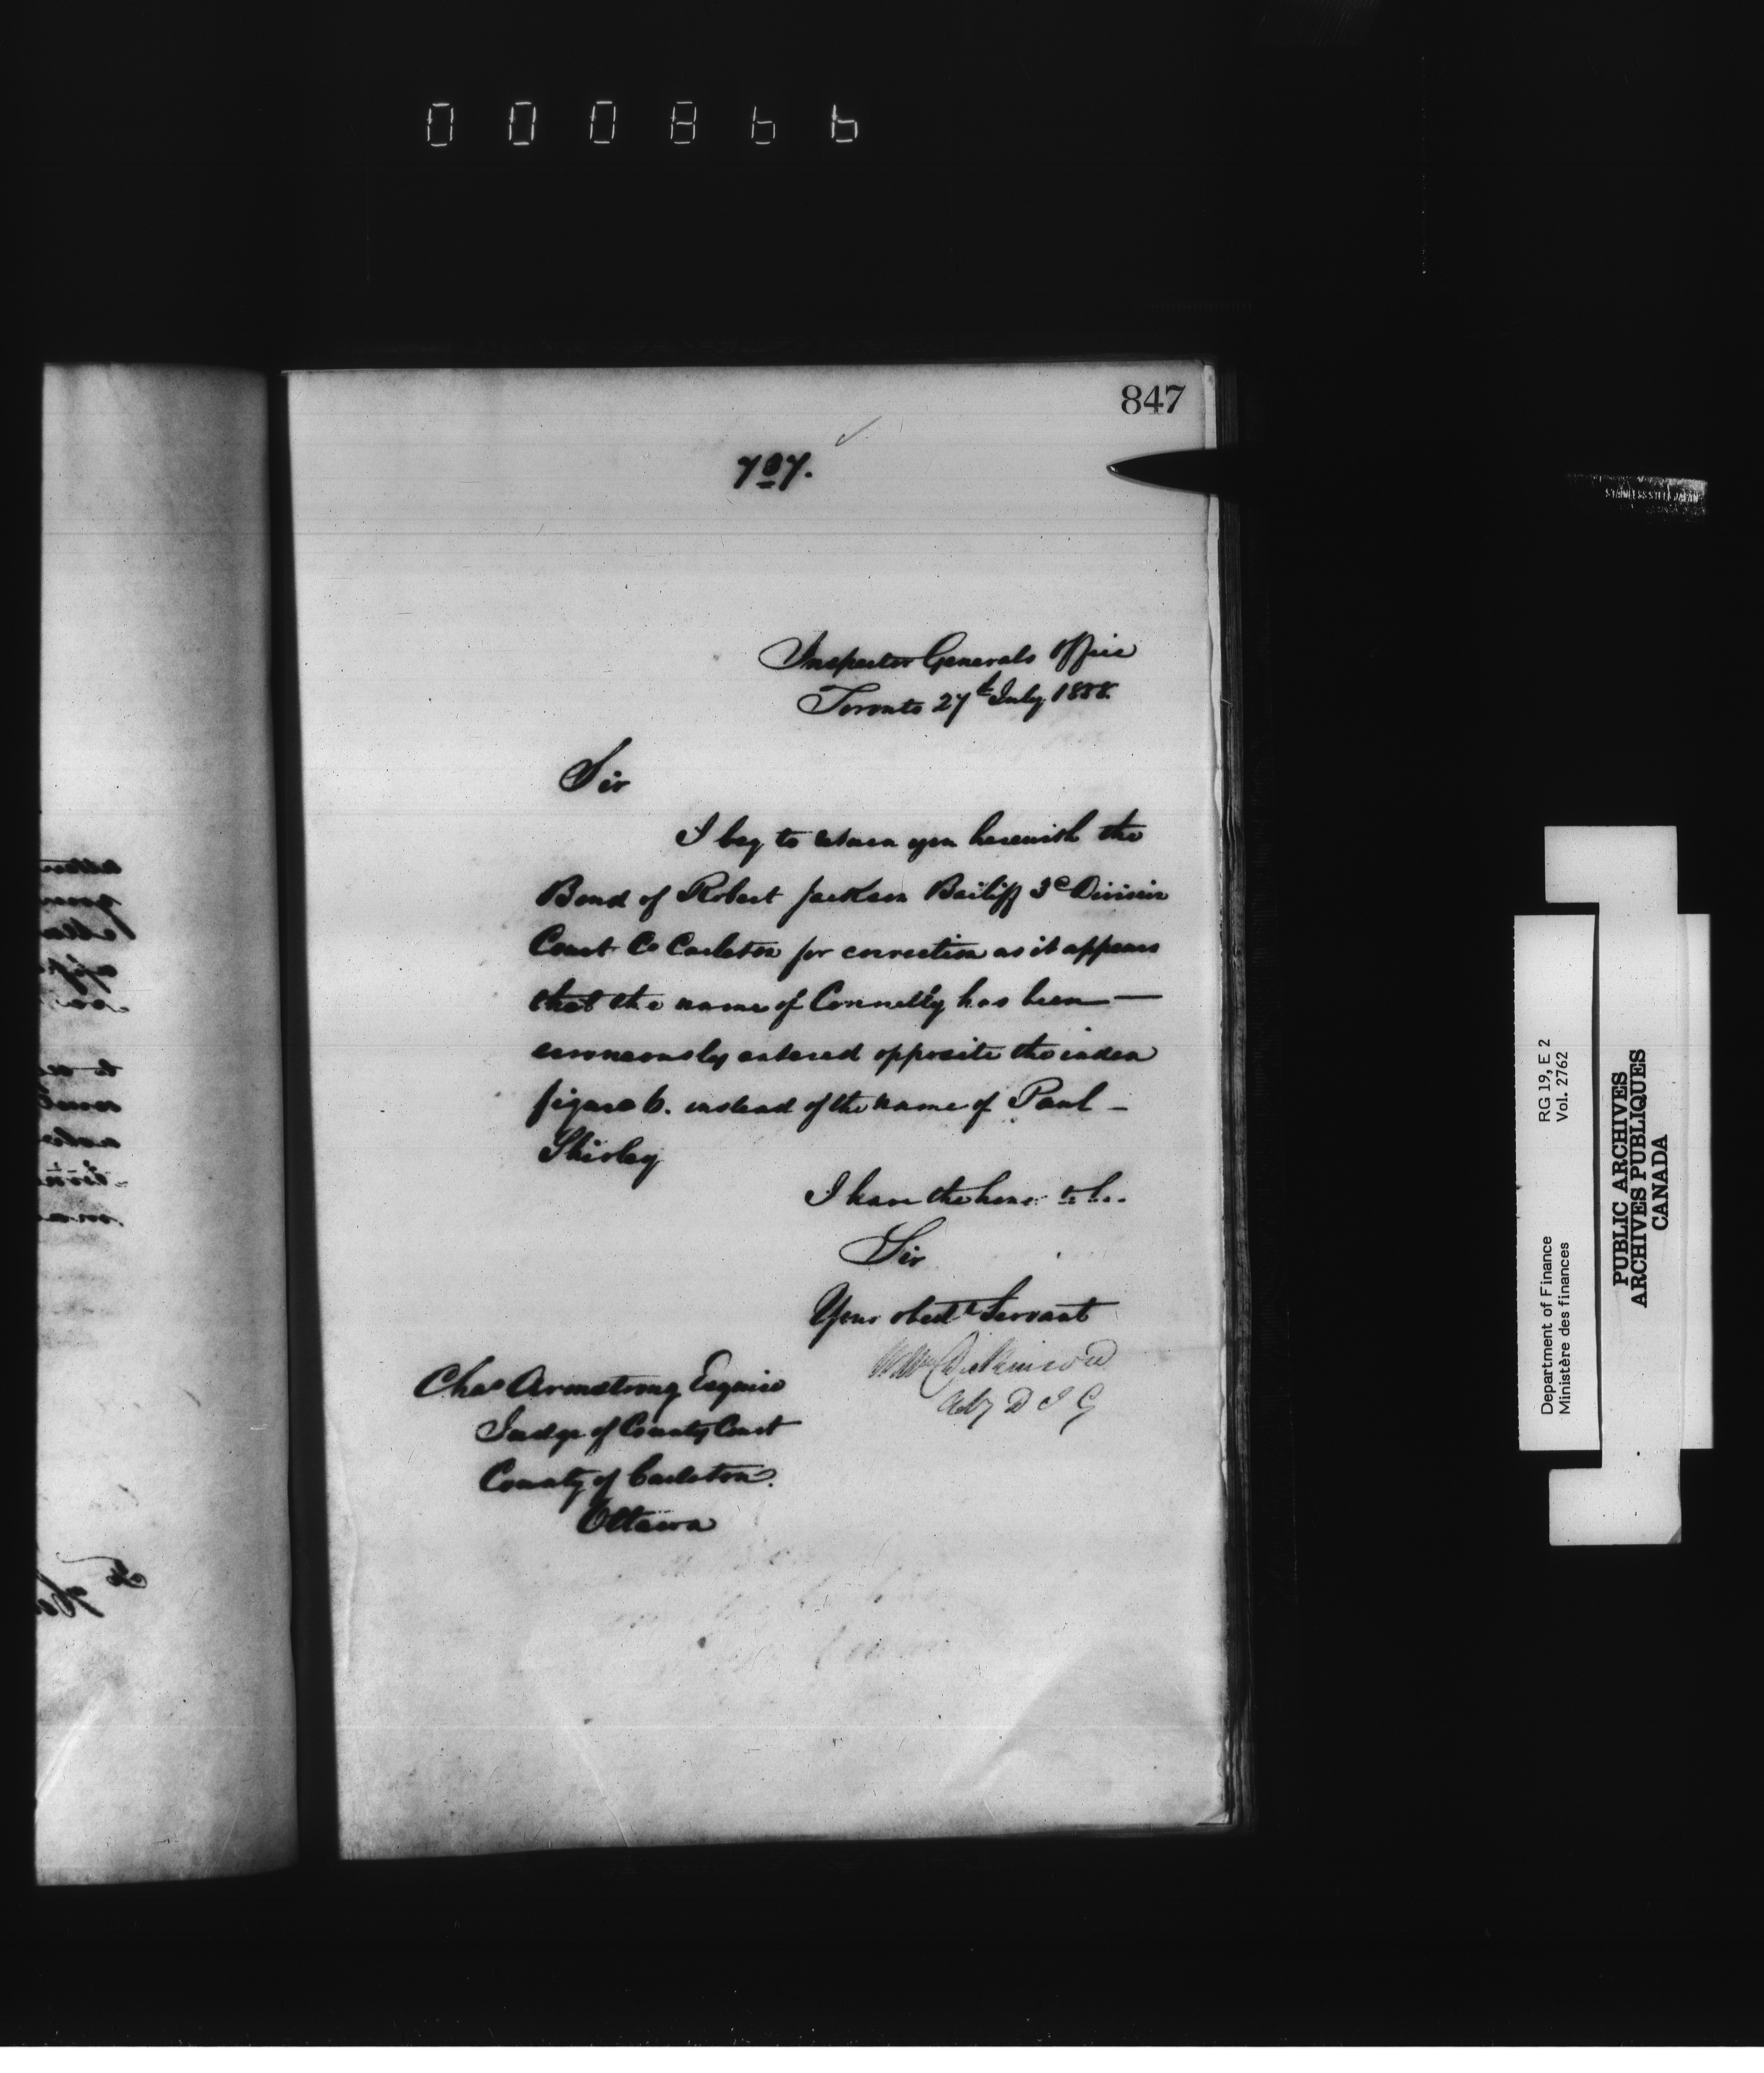 000866
847
707.
STAINLESS STEEL JAPAN
Inspector Generals Office
Toronto 27th July 1858.
Sir
I beg to return you herewith the
Bond of Robert Jackson Bailiff 3d Division
Court Co Carleton for correction as it appears
that the name of Connelly has been —
erroneously entered opposite the index
figure 6. instead of the name of Paul –
Shirley
I have the honor to be..
Sir
Your obedt Servant
Wm Dickinson
Actg D I G
Chas Armstrong Esquire
Judge of County Court
County of Carleton.
Ottawa
Department of Finance RG 19, E 2
Ministère des finances Vol. 2762
PUBLIC ARCHIVES
ARCHIVES PUBLIQUES
CANADA